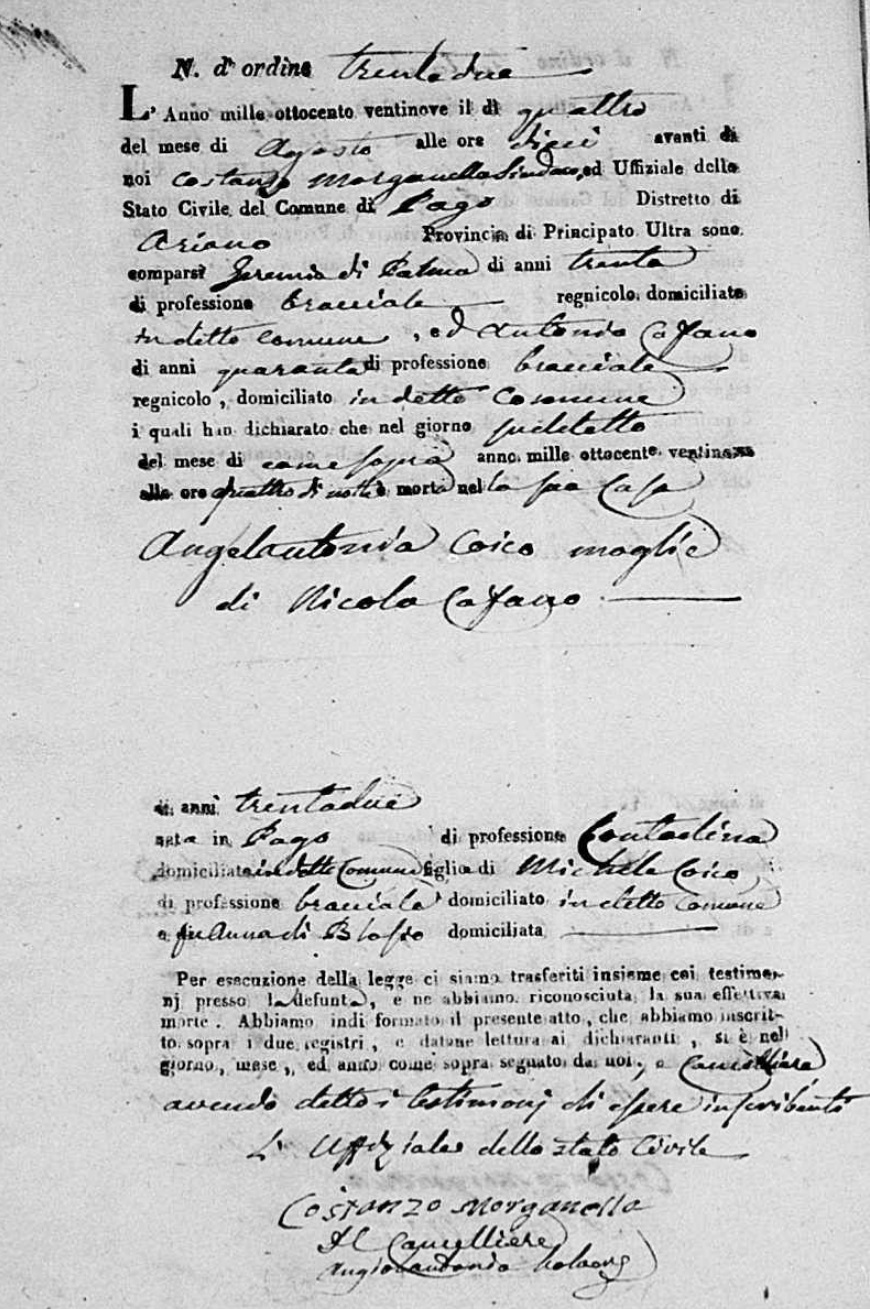 N. d'ordine trentadue
L'Anno mille ottocento ventinove il dì quattro
del mese di Agosto alle ore dieci avanti di
noi Costanzo Morganella Sindaco, ed Uffiziale dello
Stato Civile del Comune di Pago Distretto di
Ariano Provincia di Principato Ultra sono
comparsi Geremia di Palma di anni trenta
di professione bracciale regnicolo domiciliato
in detto comune, ed Antonio Cafano
di anni quaranta di professione bracciale
regnicolo, domiciliato in detto Comune
i quali han dichiarato che nel giorno sudetto
del mese di come sopra anno mille ottocento ventinove
alle ore quattro di notte è morta nel la sua Casa
Angelantonia Coico moglie
di Nicola Cafano
di anni trentadue
nata in Pago di professione Contadina
domiciliata in detto Comune figlia di Michele Coico
di professione bracciale domiciliato in detto Comune
e fu Anna di Blasio domiciliata
Per esecuzione della legge ci siamo trasferiti insieme coi testimo-
nj presso la defunta, e ne abbiamo riconosciuta la sua effettiva
morte. Abbiamo indi formato il presente atto, che abbiamo inscrit-
to sopra i due registri, e datone lettura ai dichiaranti, si è nel
giorno, mese, ed anno come sopra segnato da noi, e Cancelliere
avendo detto i testimonj di essere inscribenti
L'Uffiziale dello stato Civile
Costanzo Morganella
Il Cancelliere